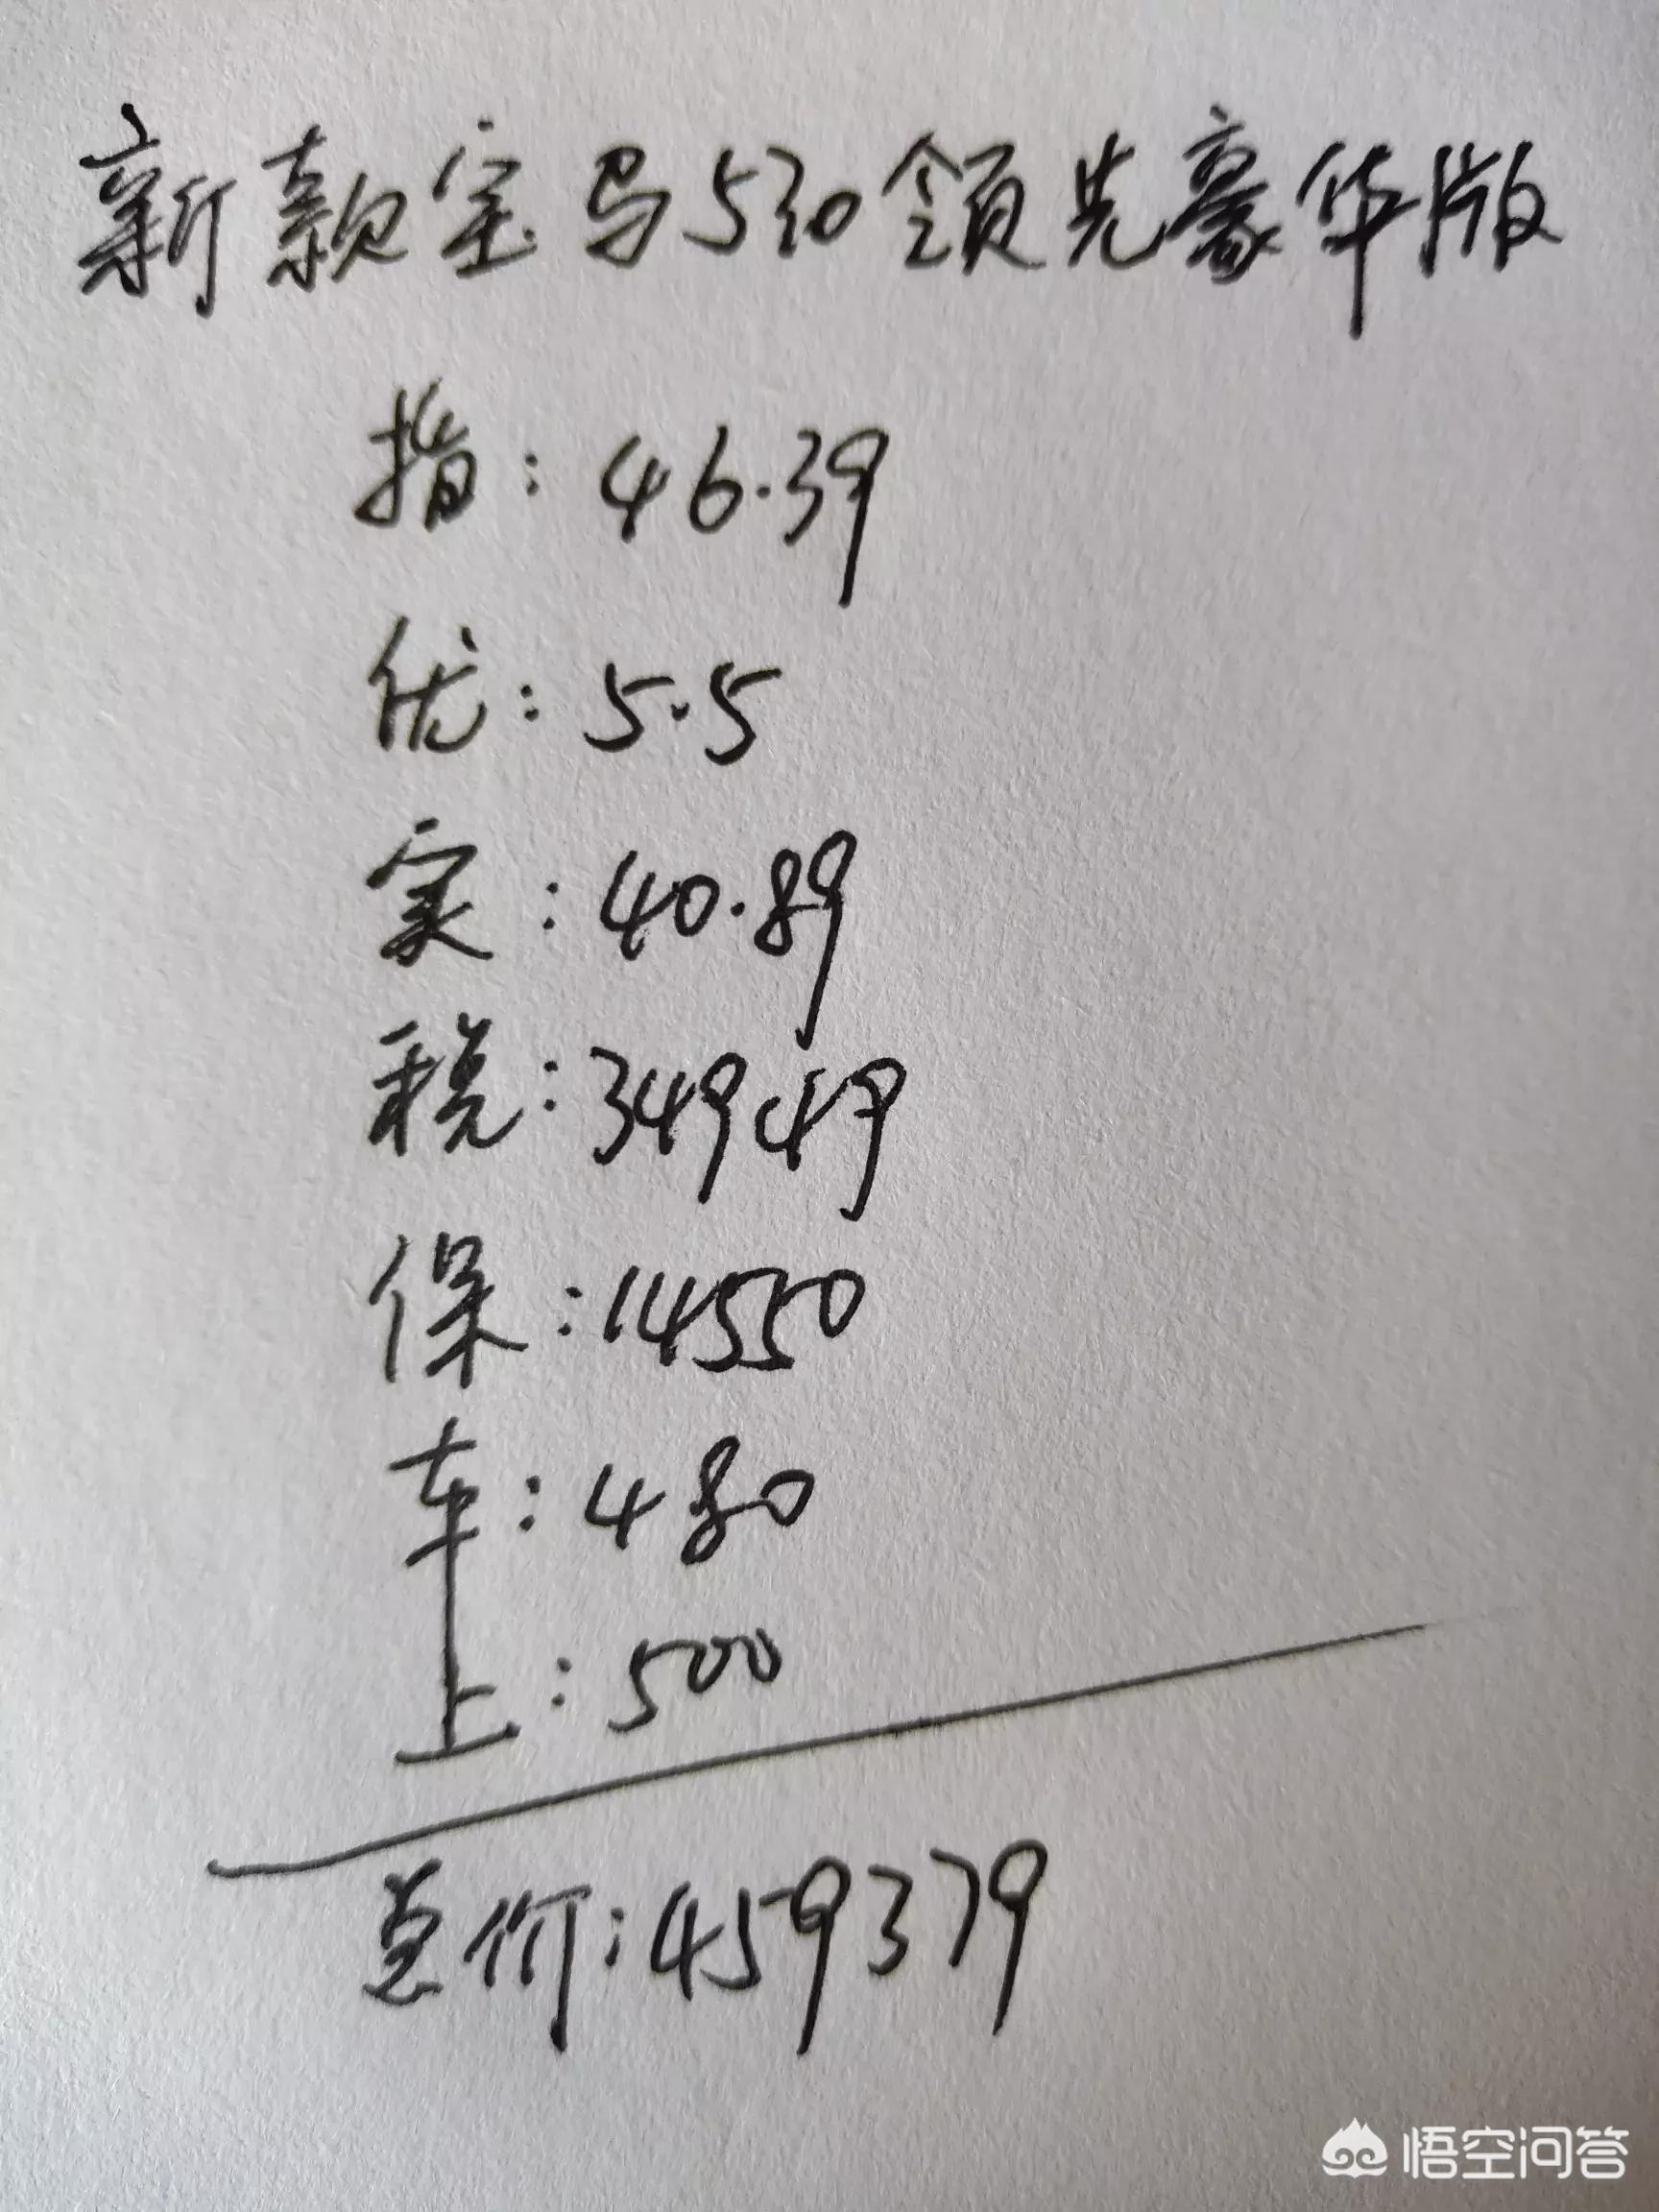 新款宝马530领先豪华版
指:46.39
优:5.5
实:40.89
税:34949
保:14550
车:480
上:500
总价:459379
悟空问答